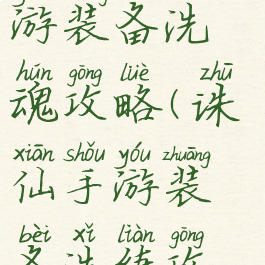 游装备洗
hún gōng lüè zhū
魂攻略(诛
xiān shǒu yóu zhuāng
仙手游装
bèi xǐ liàn gōng
备洗练攻